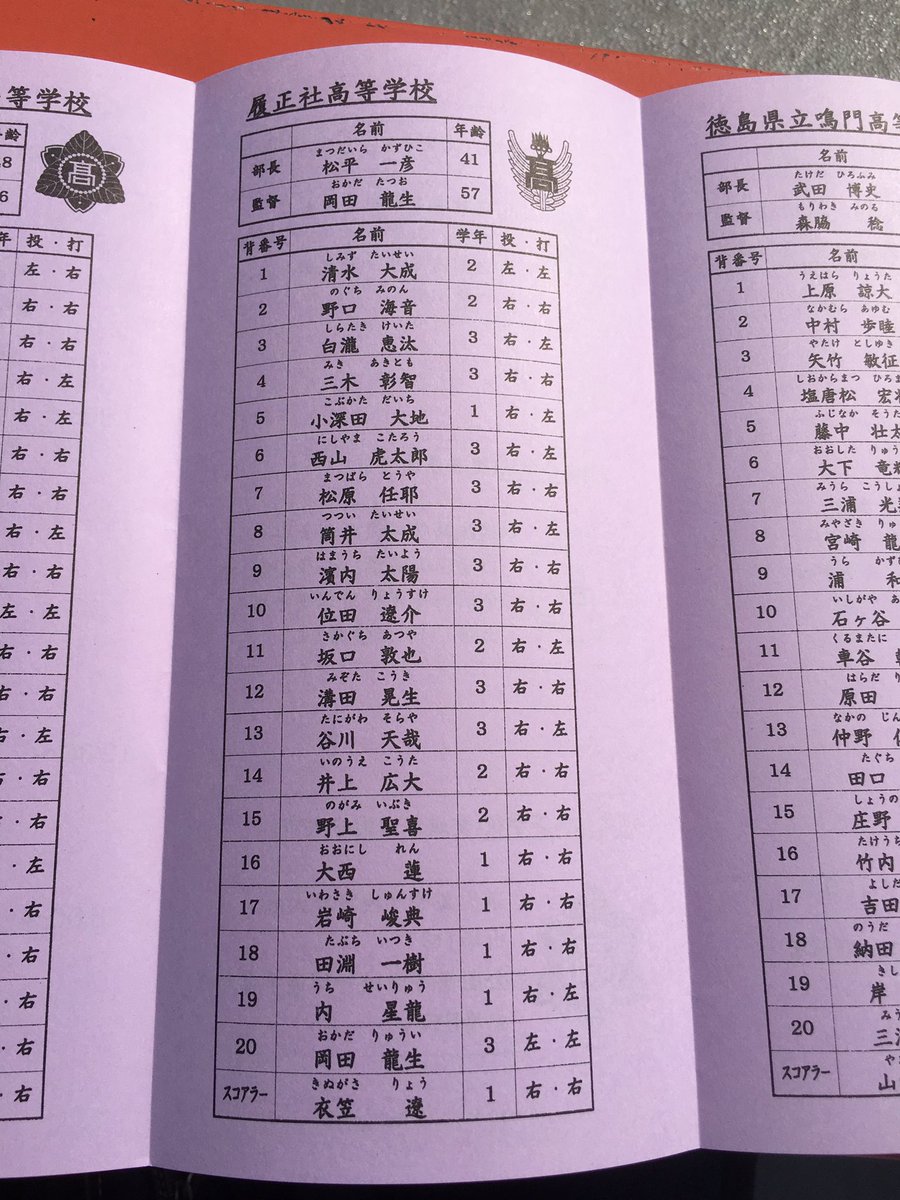 等学校
投・打
左・右
右・右
右・右
右・左
右・左
右・右
右・右
右・左
右・右
左・左
右・右
右・右
右・左
・右
・右
・左
・右
・右
・右
・右
・右
履正社高等学校
名前 年齢
まつだいら かずひこ
部長 松平 一彦 41
おかだ たつお
監督 岡田 龍生 57
高
背番号 名前 学年 投・打
しみず たいせい
1 清水 大成 2 左・左
のぐち みのん
2 野口 海音 2 右・右
しらたき けいた
3 白瀧 恵汰 3 右・左
みき あきとも
4 三木 彰智 3 右・右
こぶかた だいち
5 小深田 大地 1 右・左
にしやま こたろう
6 西山 虎太郎 3 右・左
まつばら とうや
7 松原 任耶 3 右・右
つつい たいせい
8 筒井 太成 3 右・左
はまうち たいよう
9 濱内 太陽 3 右・右
いんでん りょうすけ
10 位田 遼介 3 右・右
さかぐち あつや
11 坂口 敦也 2 右・左
みぞた こうき
12 溝田 晃生 3 右・右
たにがわ そらや
13 谷川 天哉 3 右・左
いのうえ こうた
14 井上 広大 2 右・右
のがみ いぶき
15 野上 聖喜 2 右・右
おおにし れん
16 大西 蓮 1 右・右
いわさき しゅんすけ
17 岩崎 峻典 1 右・右
たぶち いつき
18 田淵 一樹 1 右・右
うち せいりゅう
19 内 星龍 1 右・左
おかだ りゅうい
20 岡田 龍生 3 左・左
きぬがさ りょう
スコアラー 衣笠 遼 1 右・右
徳島県立鳴門高
名前
たけだ ひろふみ
部長 武田 博史
もりわき みのる
監督 森脇 稔
背番号 名前
うえはら りょうた
1 上原 諒大
なかむら あゆむ
2 中村 歩睦
やたけ としゆき
3 矢竹 敏征
しおからまつ ひろま
4 塩唐松 宏
ふじなか そうた
5 藤中 壮太
おおした りゅう
6 大下 竜
みうら こうしょ
7 三浦 光
みやざき りゅ
8 宮崎 龍
うら かず
9 浦 和
いしがや あ
10 石ヶ谷
くるまたに
11 車谷
はらだ
12 原田
なかの じん
13 仲野
たぐち
14 田口
しょうの
15 庄野
たけうち
16 竹内
よしだ
17 吉田
のうだ
18 納田
きし
19 岸
20 三
スコアラー 山